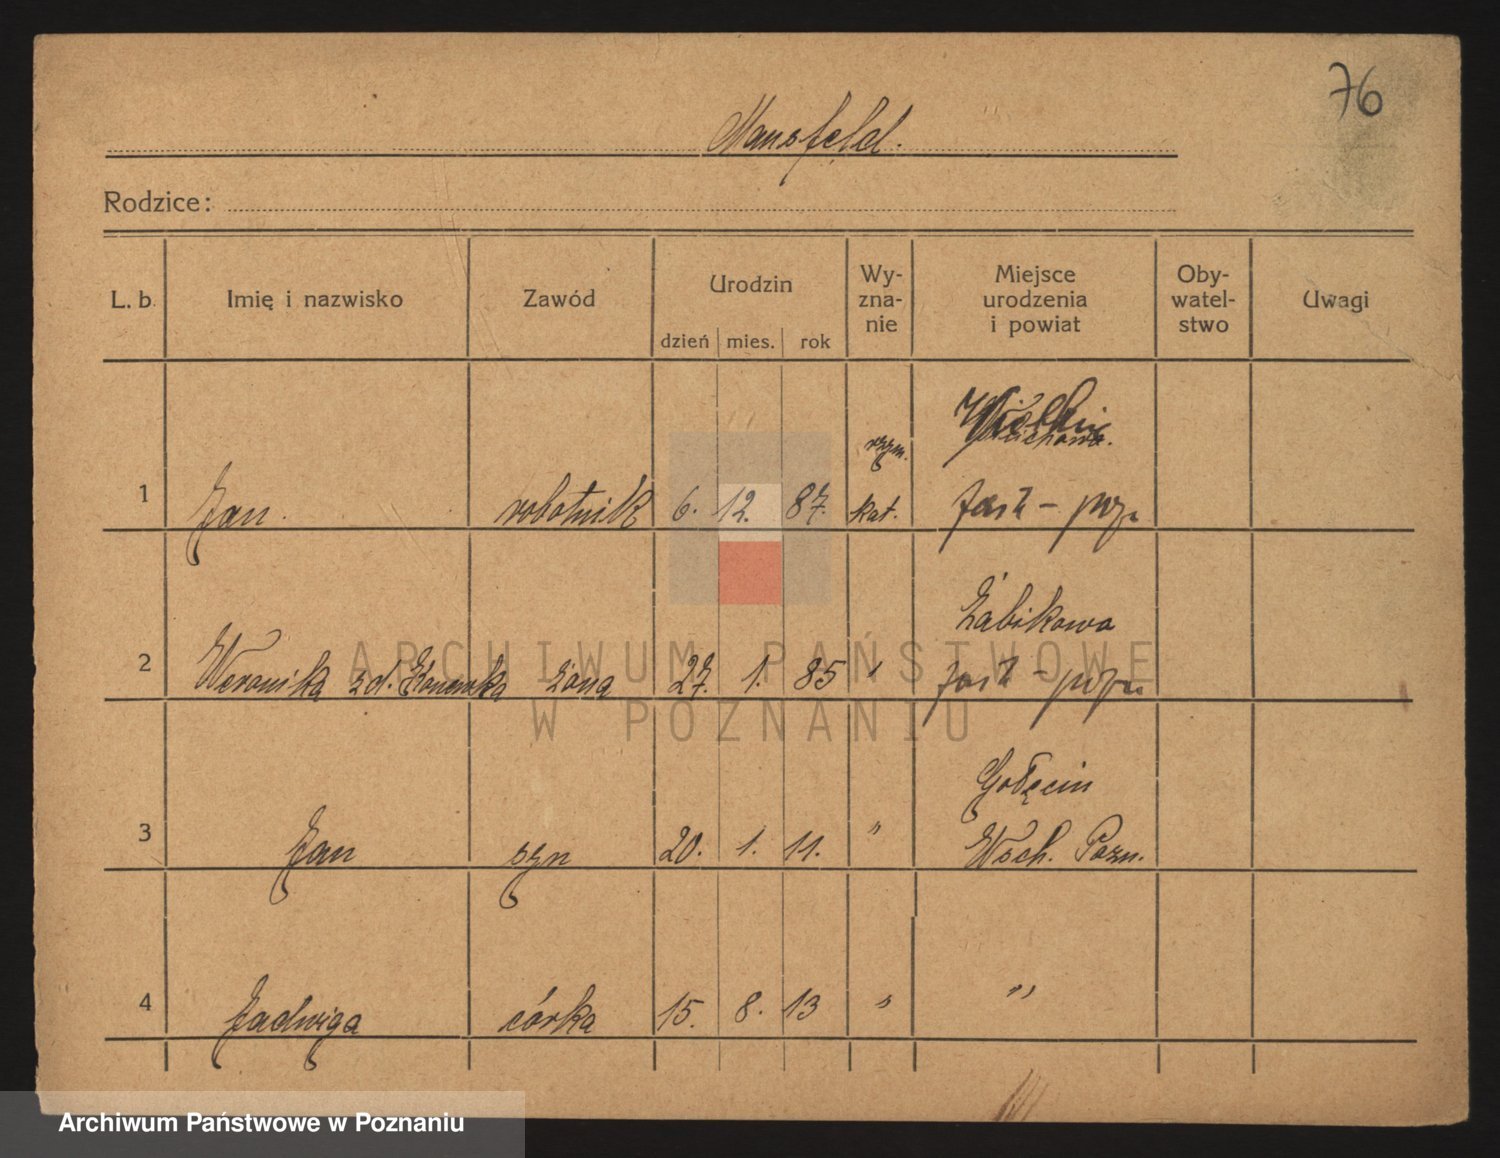 76
Mansfeld.
Rodzice:
L. b. Imię i nazwisko Zawód Urodzin Wy-zna-nie Miejsce urodzenia i powiat Oby-watel-stwo Uwagi
dzień mies. rok
rzym.
1 Jan robotnik 6. 12. 87. kat.
Żabikowo
2 Weronika zd. żona 27. 1. 85 "
Gołęcin
3 Jan syn 20. 1. 11. " Wsch. Pozn.
4 Jadwiga córka 15. 8. 13 " "
ARCHIWUM PAŃSTWOWE
W POZNANIU
Archiwum Państwowe w Poznaniu